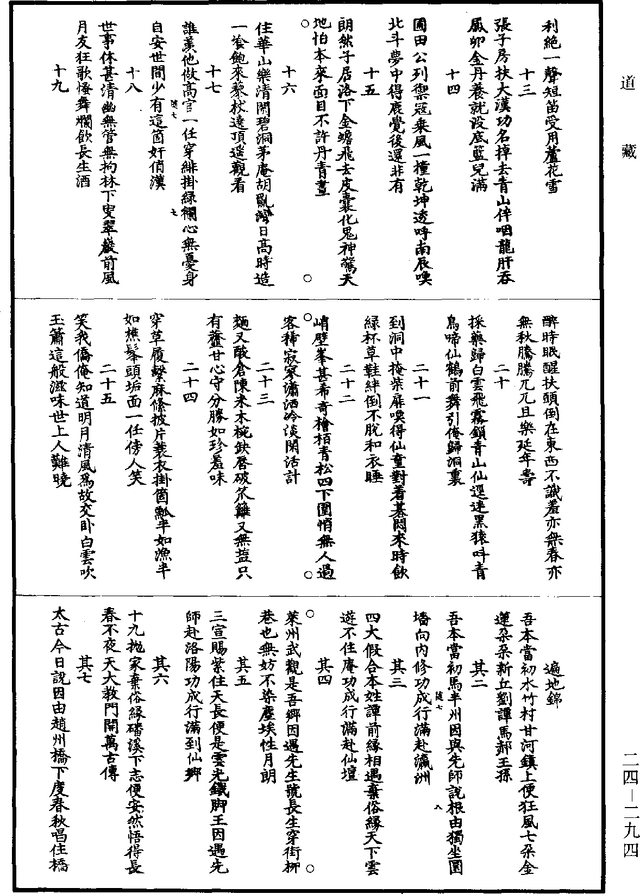 道藏
利絶一聲短笛受用蘆花雪
十三
張子房扶大漢功名掉去青山伴咽龍肝吞
鳳卵金丹養就没底籃兒滿
十四
圃田公列禦冠乘風一撞乾坤透呼南辰喚
北斗夢中得鹿覺後還非有
十五
朗然子居洛下金蟾飛去皮囊化鬼神驚天
地怕本來面目不許丹青畫
十六
住華山樂清閑碧洞茅庵胡亂灣日高時造
一飡飽來藜杖遶頂遥觀看
十七
誰羡他做高官一任穿緋掛緑襴心無憂身
自安世間少有這箇奸俏漢
十八
世事休甚清幽無管無拘林下叟翠巖前風
月友狂歌慢舞爛飲長生酒
十九
醉時眠醒扶頭倒在東西不識羞亦無春亦
無秋騰騰兀兀且樂延年壽
二十
採藥歸白雲飛霧鎖青山仙逕迷黑猿呌青
鳥啼仙鶴前舞引俺歸洞裏
二十一
到洞中掩柴扉喚得仙童對着棊悶來時飲
緑杯草鞋絆倒不脱和衣睡
二十二
峭壁峯甚希奇檜栢青松四下圍悄無人過
客稀寂寥瀟洒冷淡閑活計
二十三
麵又酸倉陳米木椀缺唇破笊籬又無塩只
有虀甘心守分勝如珍羞味
二十四
穿草履繫麻絛披片蓑衣掛箇瓢半如漁半
如樵髼頭垢面一任傍人笑
二十五
笑我僑俺知道明月清風爲故交卧白雲吹
玉簫這般滋味世上人難曉
遍地錦
吾本當初水竹村甘河鎮上便狂風七朵金
蓮朵朵新丘劉譚馬郝王孫
其二
吾本當初馬半州因與先師説根由獨坐圜
墻向内修功成行滿赴瀛洲
其三
四大假合本姓譚前緣相遇棄俗緣天下雲
遊不住庵功成行滿赴仙壇
其四
萊州武觀是吾鄉因遇先生號長生穿街柳
巷也無妨不染塵埃性月朗
其五
三宣賜紫住天長便是雲光鐵脚王因遇先
師赴洛陽功成行滿到仙鄉
其六
十九抛家棄俗緣磻溪下志便安然悟得長
春不夜天大教門開萬古傳
其七
太古今日説因由趙州橋下度春秋唱住橋
二四—二九四